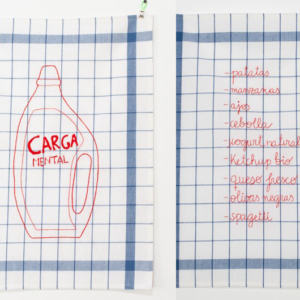 CARGA
MENTAL
-patatas
-manzanas
-ajos
-cebolla
-yogurt natural
-Ketchup bio
-queso fresco
-olivas negras
-spagetti